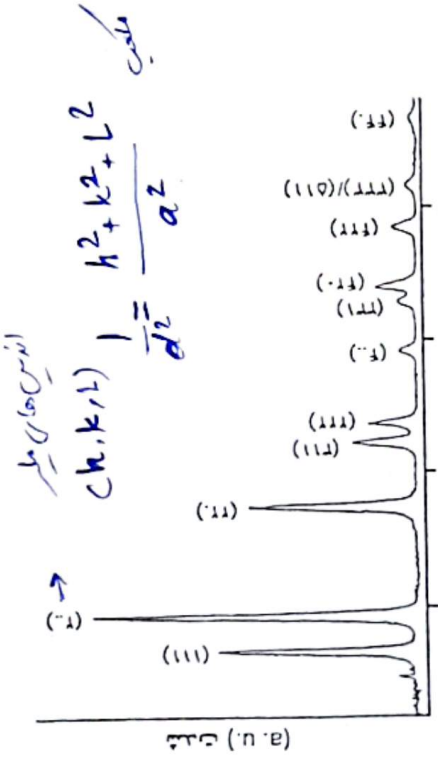 اندیس های میلر
(h,k,L) 1/d² = h²+k²+L² / a² مکعب
شدت (a. u.)
(۱۱۱)
(۲۰۰) →
(۲۲۰)
(۳۱۱)
(۲۲۲)
(۴۰۰)
(۳۳۱)
(۴۲۰)
(۴۲۲)
(۳۳۳)/(۵۱۱)
(۴۴۰)